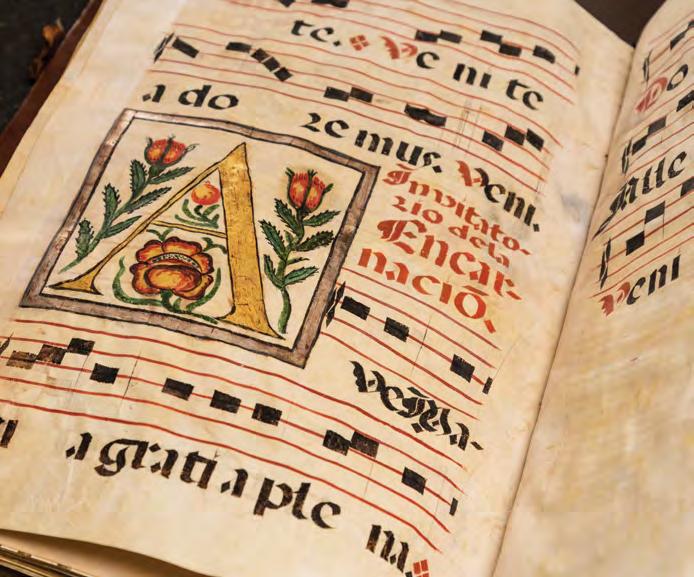 te. Ve ni te
a do re mus. Veni.
Invitato-
rio de la
Encar-
naciõ.
A
ve Ma-
ri a gratia ple na.
Do
Alle
Veni